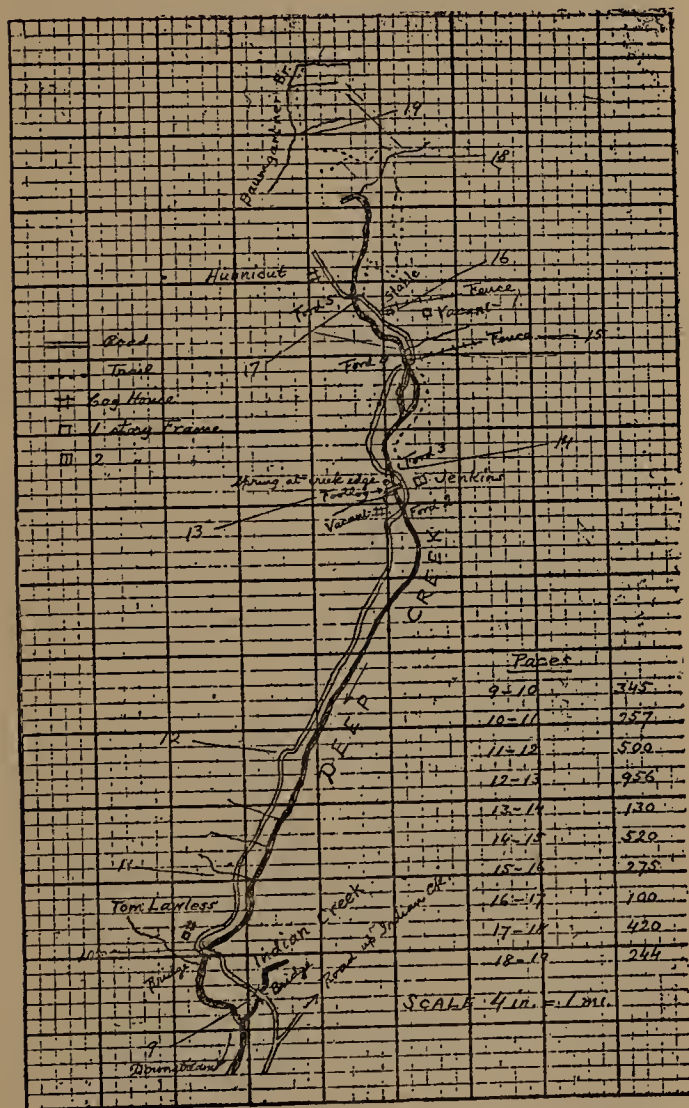 Baumgartner Br.
19
18
16
Hunnicut
Stable
Fence
Vacant
Ford 5
Fence
15
Ford 4
17
Road
Trail
Log House
1 story Frame
2 " "
14
Ford 3
Spring at creek edge
Jenkins
Footlog
Vacant
Ford 2
13
DEEP CREEK
12
11
Tom Lawless
10
Bridge
Indian Creek
Bridge
Road up Indian Ck.
9
Downstream
Paces
9-10 345
10-11 257
11-12 500
12-13 956
13-14 130
14-15 520
15-16 275
16-17 100
17-18 420
18-19 244
SCALE 4 in. = 1 mi.